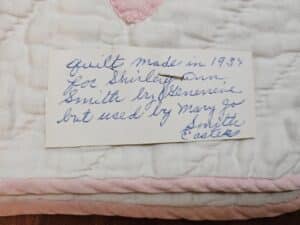 quilt made in 1934
for Shirley Ann
Smith by Genevieve
but used by Mary Jo
Smith